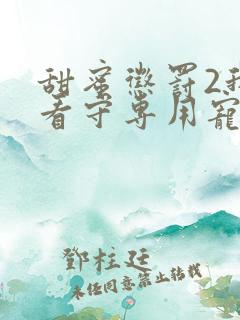 甜蜜惩罚2我
看守专用宠
鄧柱廷
未经同意禁止转载